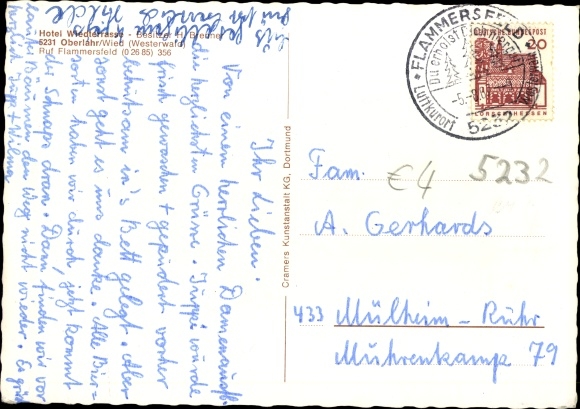 Hotel Wiedterrasse - Besitzer H. Bremer
5231 Oberlahr/Wied (Westerwald)
Ruf Flammersfeld (0 26 85) 356
Ihr Lieben!
Von einem herrlichen Damenausfl.
die herzlichsten Grüsse. Juppi wurde
frisch gewaschen + gepudert vorher
behutsam in's Bett gelegt. Aber
sonst geht es uns danke. Alle Bier-
sorten haben wir durch, jetzt kommt
der Schnaps dran. Dann finden wir vor
Bäumen den Weg nicht wieder. Es grüs
herzlich Jupp + Wilma
Cramers Kunstanstalt KG, Dortmund
FLAMMERSFELD
Luftkurort
5232
DEUTSCHE BUNDESPOST
20
LORSCH/HESSEN
5232
€4
Fam.
A. Gerhards
433 Mülheim-Ruhr
Muhrenkamp 79